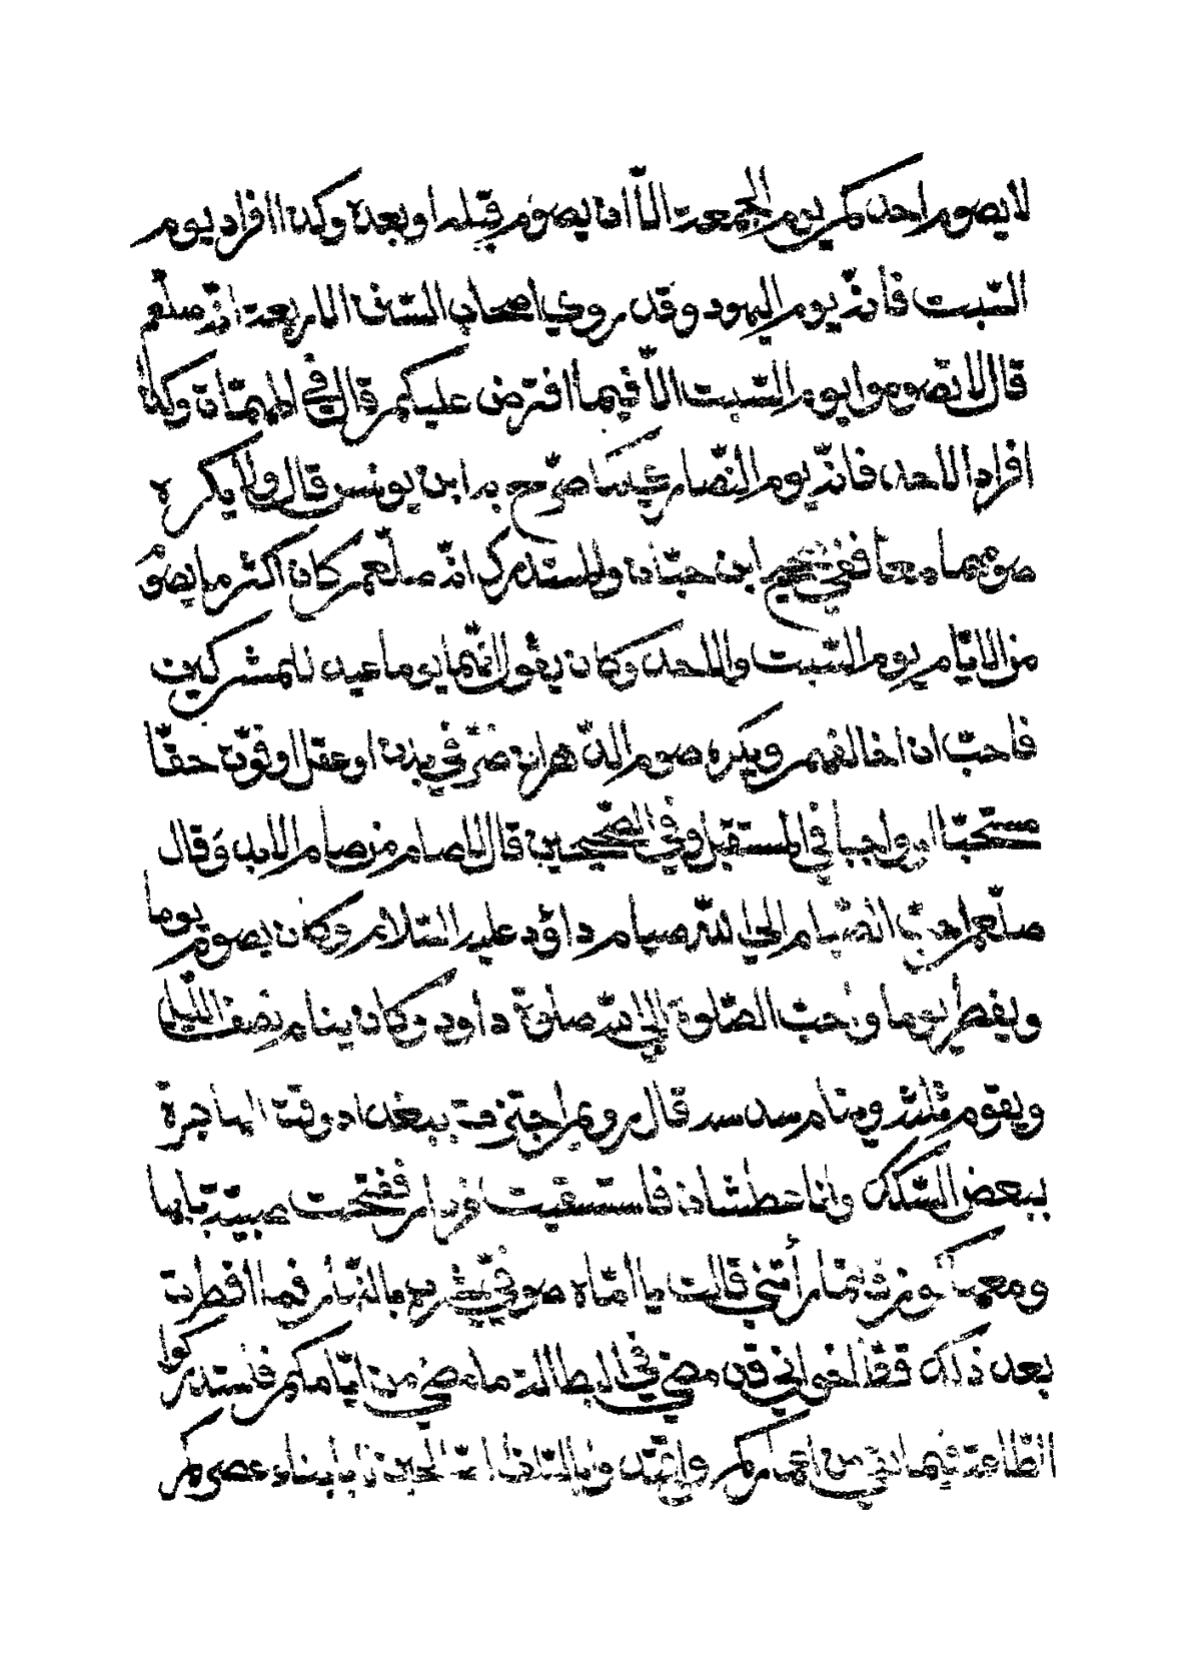 لا يصوم احدكم يوم الجمعة الّا ان يصوم قبله او بعده وكذا افراد يوم
السّبت فانّه يوم اليهود وقد روي اصحاب السّنن الاربعة انّه صلّعم
قال لا تصوموا يوم السّبت الّا فيما افترض عليكم قال في المهمّات وكذا
افراد الاحد فانّه يوم النّصاري كما صّرح به ابن يونس قال ولا يكره
صومهما معا ففي صحيح ابن حبّان والمستدرك انّه صلّعم كان اكثر ما يصوم
من الايّام يوم السّبت والاحد وكان يقول انّهما يوما عيد للمشركين
فاحبّ ان اخالفهم ويكره صوم الدّهر ان ضرّ في بدن او عقل او فوّت حقّا
مستحبّا او واجبا في المستقبل وفي الصّحيحين قال لا صام من صام الابد وقال
صلّعم احبّ الصّيام الي اللّه صيام داؤد عليه السّلام وكان يصوم يوما
ويفطر يوما واحبّ الصّلوة الي اللّه صلوة داود وكان ينام نصف اللّيل
ويقوم ثلثه وينام سدسه قال رويم اجتزت ببغداد وقت الهاجرة
ببعض السّكك وانا عطشان فاستسقيت من دار ففتحت صبيّة بابها
ومعها كوز فلمّا رأتني قالت يا امّاه صوفيّ يشرب بالنّهار فما افطرت
بعد ذلك فقط اخواني قد مضي في البطالة ما مضي من ايّامكم فاستدركوا
الطّاعة فيما بقي من اعماركم واقتدوا بالسّادة الصّالحين يا ابناء عصركم